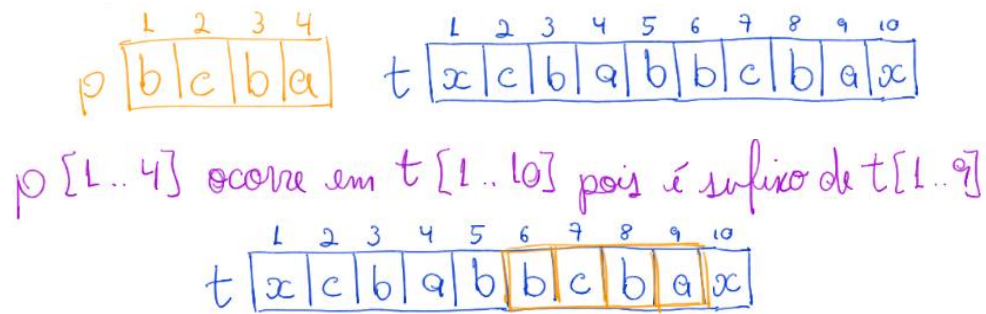 1 2 3 4 1 2 3 4 5 6 7 8 9 10
p b c b a t x c b a b b c b a x
p[1..4] ocorre em t[1..10] pois é sufixo de t[1..9]
1 2 3 4 5 6 7 8 9 10
t x c b a b b c b a x